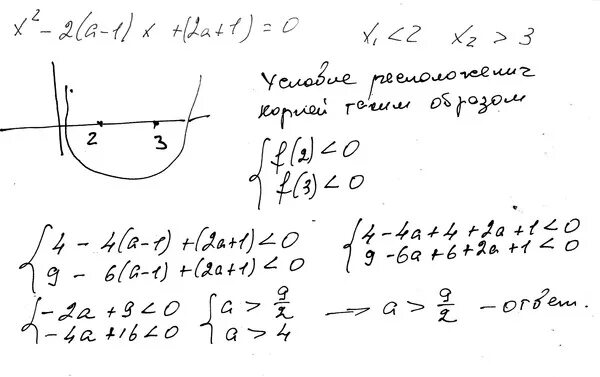 x² - 2(a-1)x + (2a+1) = 0   x₁ < 2   x₂ > 3
Условие расположения
корней таким образом
2 3
{ f(2) < 0
f(3) < 0
{ 4 - 4(a-1) + (2a+1) < 0
9 - 6(a-1) + (2a+1) < 0
{ 4 - 4a + 4 + 2a + 1 < 0
9 - 6a + 6 + 2a + 1 < 0
{ -2a + 9 < 0   { a > 9/2   → a > 9/2 - ответ.
-4a + 16 < 0   a > 4